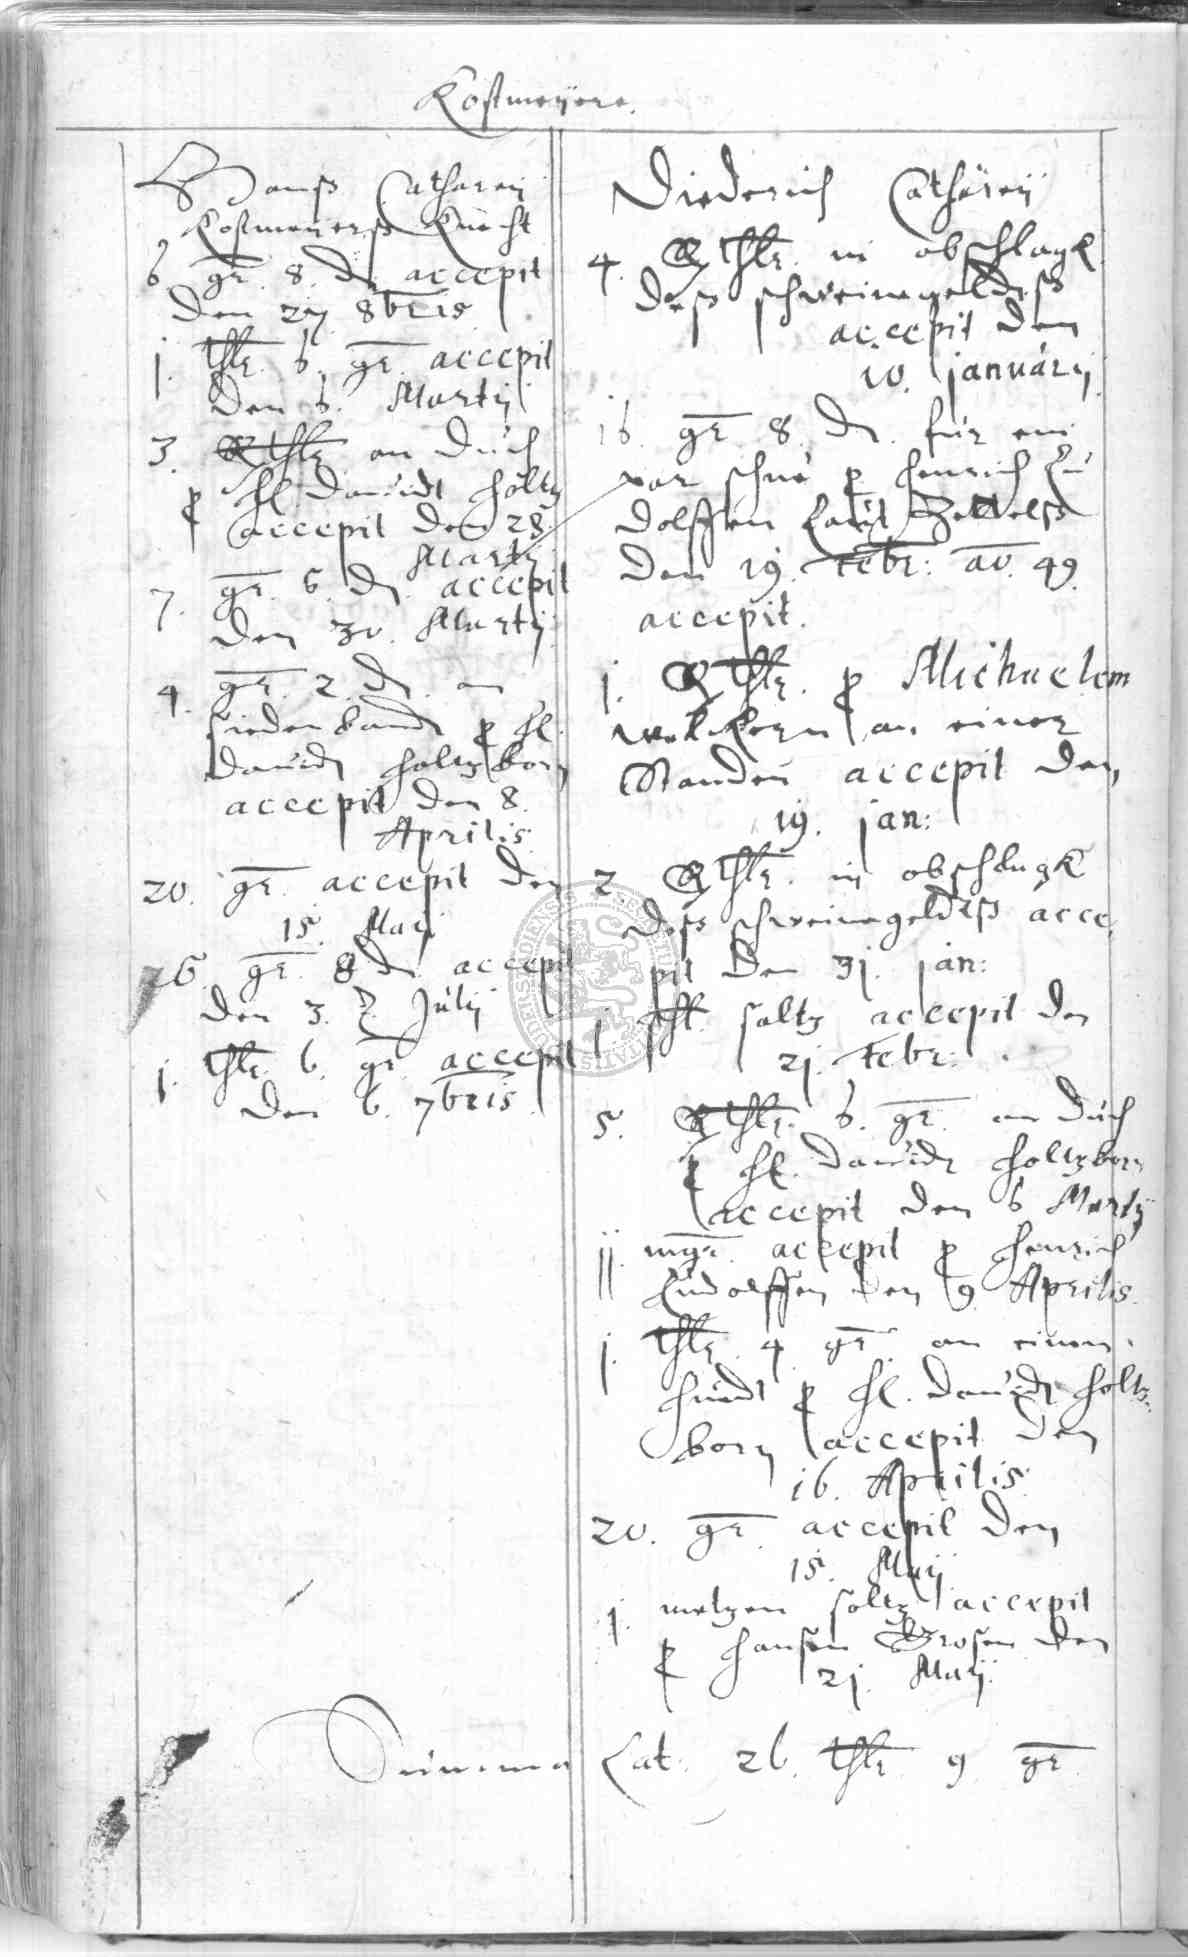 Kostmeyere.
Hanß Catharey
Kostmeyerß Knecht
6 gr. 8. d. accepit
den 27 8bris
j. thlr. 6. gr. accepit
den 6. Martij
3. Rthlr an Duch
p Hl. Dauidt Holtz
accepit den 28.
Martij
7. gr. 6. d. accepit
den 30. Martij
4. gr. 2. d. an
siedenbandt p Hl.
Dauidt Holtzborn
accepit den 8.
Aprilis.
20. gr. accepit den
15. Maij
26. gr. 8 d. accepit
den 3. Julij
j. thlr. 6. gr. accepit
den 6. 7bris.
Diederich Catharey
4. Rthlr. in abschlagk
deß schweinegeldeß
accepit den
10. januarij
16. gr. 8. d. für ein
par schue p Henrich Lu
dolffen Laut Zettelß
den 19. Febr: ao. 49.
accepit.
j. Rthlr. p Michaelem
welckern an einer
Standen accepit den
19. jan:
2. Rthlr. in abschlagk
deß schweinegeldeß acce,
pit den 3j. jan:
j hl. saltz accepit den
2j. Febr:
5. Rthlr. 6. gr. an Duch
p Hl. Dauidt Holtzborn
accepit den 6 Martij
jj. mgr. accepit p Henrich
Ludolffen den 9. Aprilis.
j. thlr. 4 gr. an einem
Huedt p Hl. Dauidt Holtz..
born accepit den
16. Aprilis.
20. gr. accepit den
15. Maij
j. metzen saltz accepit
p Hansen Grosen den
2j. Maij.
Summa Lat. 26. thlr 9 gr